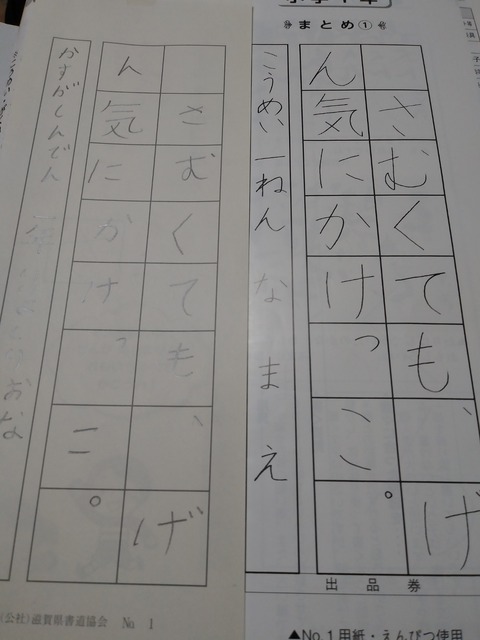 まとめ①
さむくても、げ
ん気にかけっこ。
こうめい 一ねん なまえ
出品券
▲No.1用紙・えんぴつ使用
さむくても、げ
ん気にかけっこ。
かすがしんでん
(公社)滋賀県書道協会 No. 1